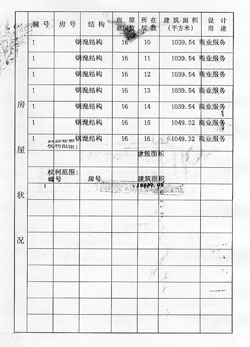 幢号 房号 结构 房屋总层数 所在层数 建筑面积(平方米) 设计用途
1 钢混结构 16 10 1039.54 商业服务
1 钢混结构 16 11 1039.54 商业服务
1 钢混结构 16 12 1039.54 商业服务
1 钢混结构 16 13 1039.54 商业服务
1 钢混结构 16 14 1039.54 商业服务
1 钢混结构 16 15 1049.32 商业服务
1 钢混结构 16 16 1049.32 商业服务
权利范围:
建筑面积
权利范围:
幢号 房号 建筑面积
1
房屋状况